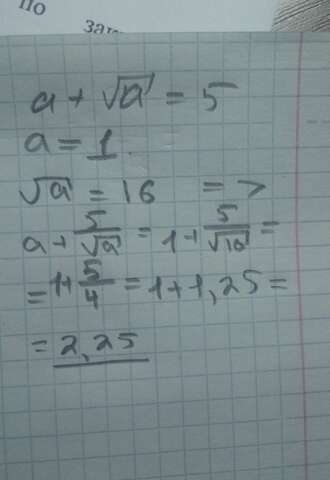 по
зат
a + √a = 5
a = 1.
√a = 16 = >
a + 5/√a = 1 + 5/√16 =
= 1 + 5/4 = 1 + 1,25 =
= 2,25